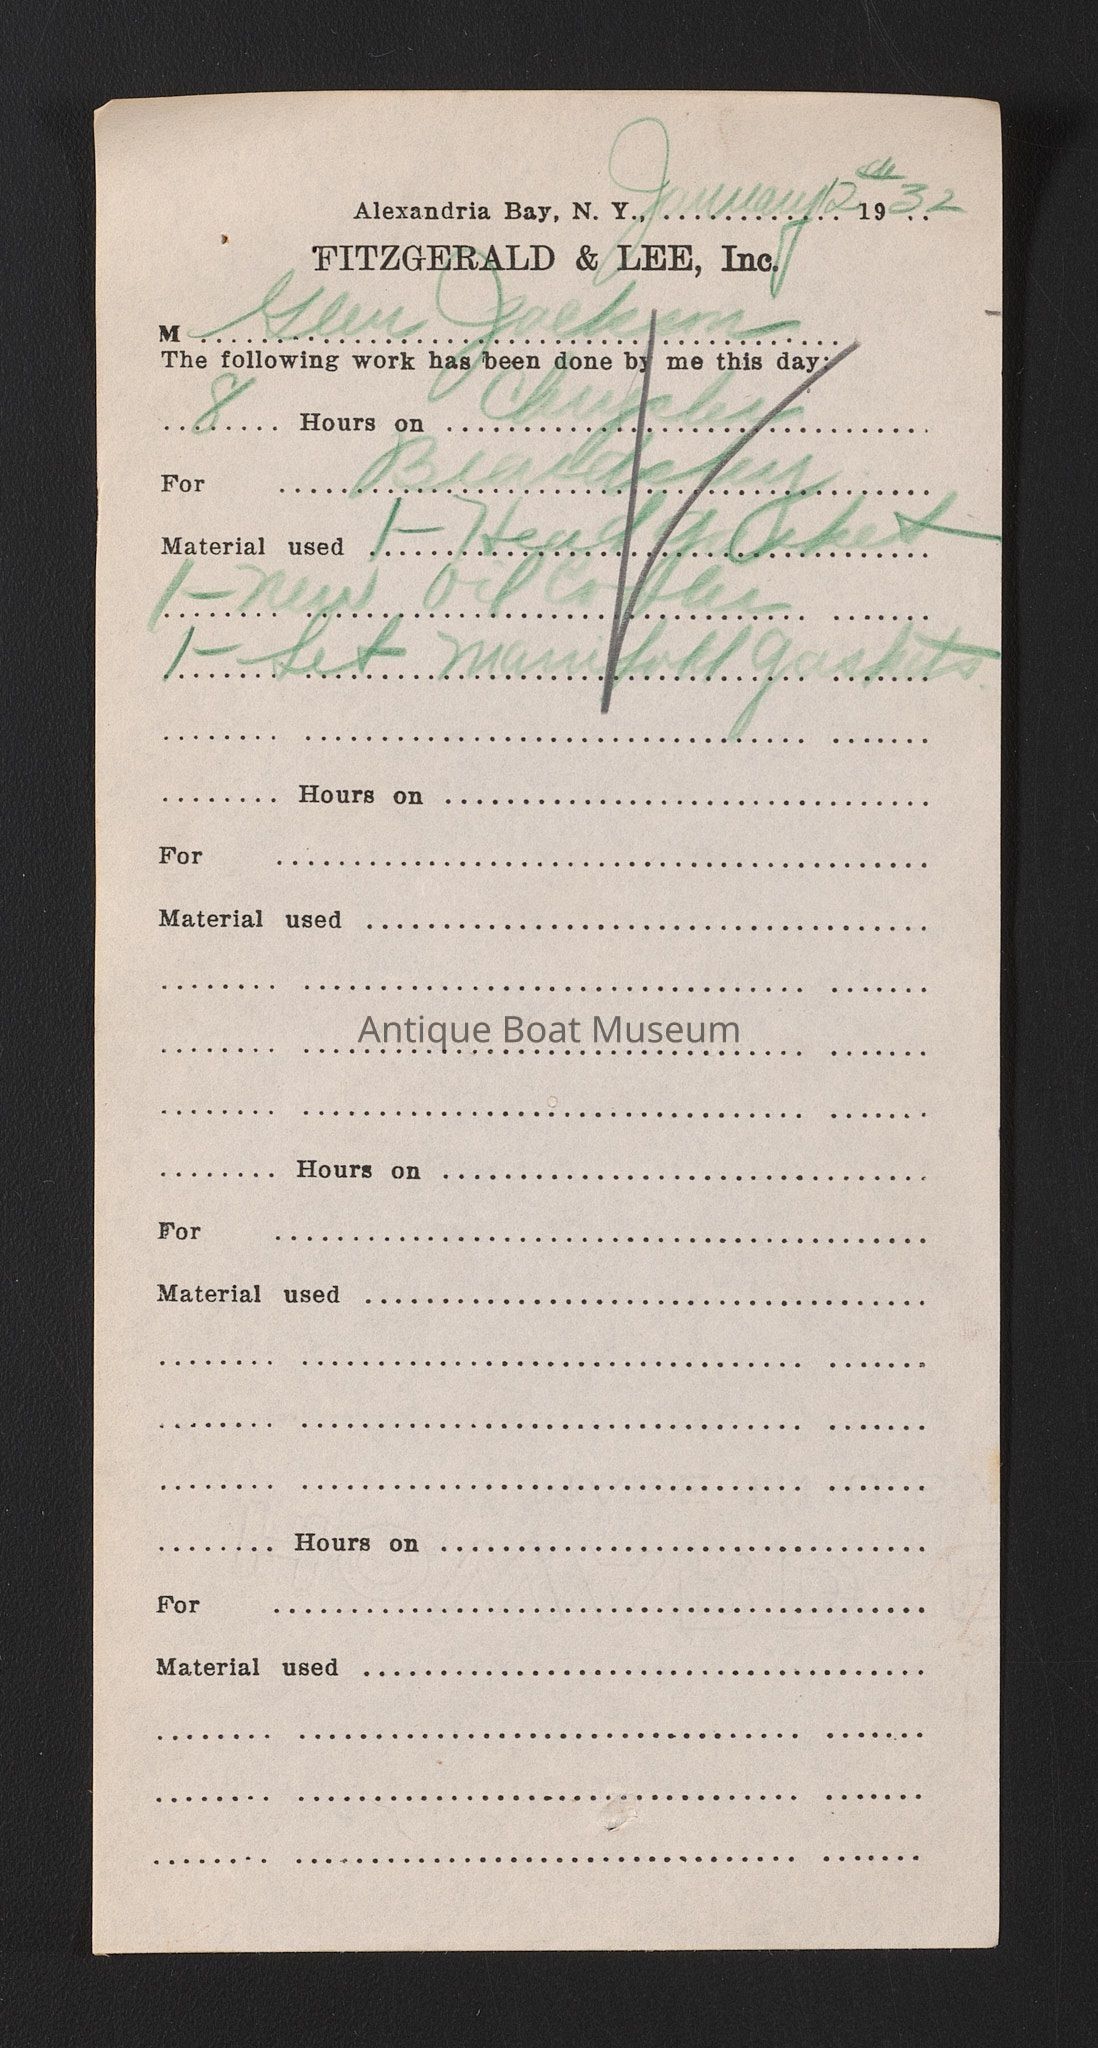 Alexandria Bay, N. Y., January 12th 1932
FITZGERALD & LEE, Inc.
M Glen Jackson
The following work has been done by me this day:
8 Hours on Chrysler
For
Material used 1- Head Gasket
1- New Oil Cooler
1- Set Manifold Gaskets
Hours on
For
Material used
Antique Boat Museum
Hours on
For
Material used
Hours on
For
Material used